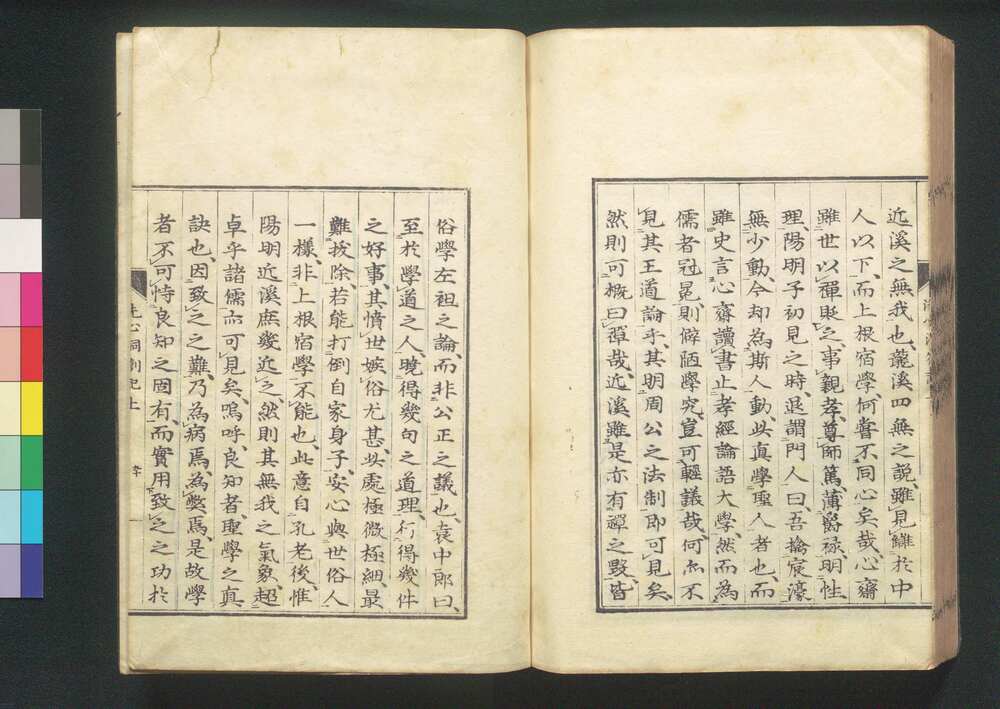 近溪之無我也、龍溪四無之說、雖見鏟於中
人以下、而上根宿學、何嘗不同心矣哉、心齋
雖世以禪貶之、事親孝、尊師篤、薄爵祿、明性
理、陽明子初見之時、退謂門人曰、吾擒宸濠
無少動、今却為斯人動、此真學聖人者也、而
雖史言心齋讀書止孝經論語大學、然而為
儒者冠冕、則僻陋學究、豈可輕議哉、何亦不
見其王道論乎、其明周公之法制即可見矣、
然則可概曰禪哉、近溪雖是亦有禪之毀、皆
俗學左袒之論、而非公正之議也、袁中郎曰、
至於學道之人、曉得幾句之道理、行得幾件
之好事、其憤世嫉俗尤甚、此處極微極細、最
難拔除、若能打倒自家身子、安心與世俗人
一樣、非上根宿學不能也、此意自孔老後、惟
陽明近溪庶幾近之、然則其無我之氣象、超
卓乎諸儒亦可見矣、嗚呼、良知者、聖學之真
訣也、因致之之難、乃為病焉、為弊焉、是故學
者不可恃良知之固有、而實用致之之功於
洗心洞劄記上